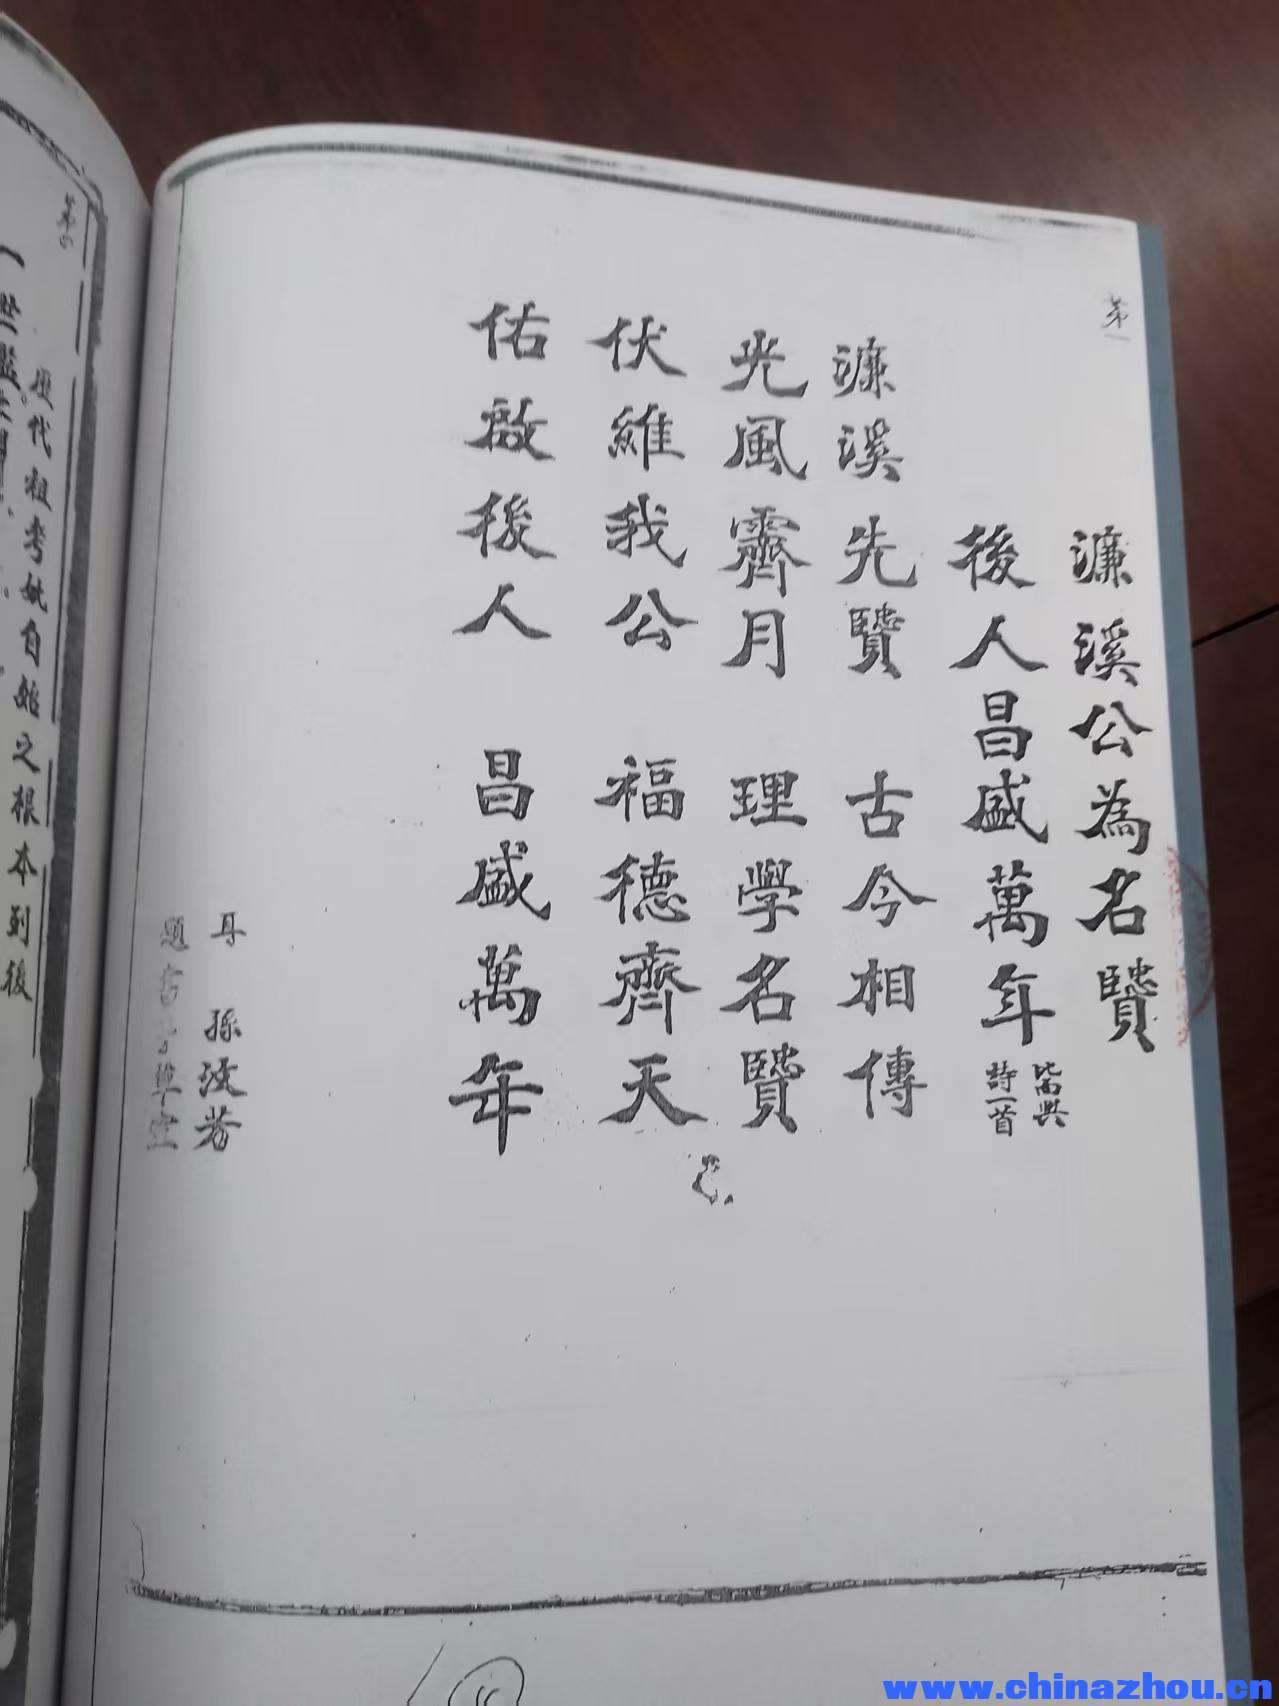 第一
濂溪公為名贒
後人昌盛萬年
詩一首
濂溪先贒 古今相傳
光風霽月 理學名贒
伏維我公 福德齊天
佑啟後人 昌盛萬年
耳孫汝芳
題
歷代祖考妣自始之根本到後
www.chinazhou.cn